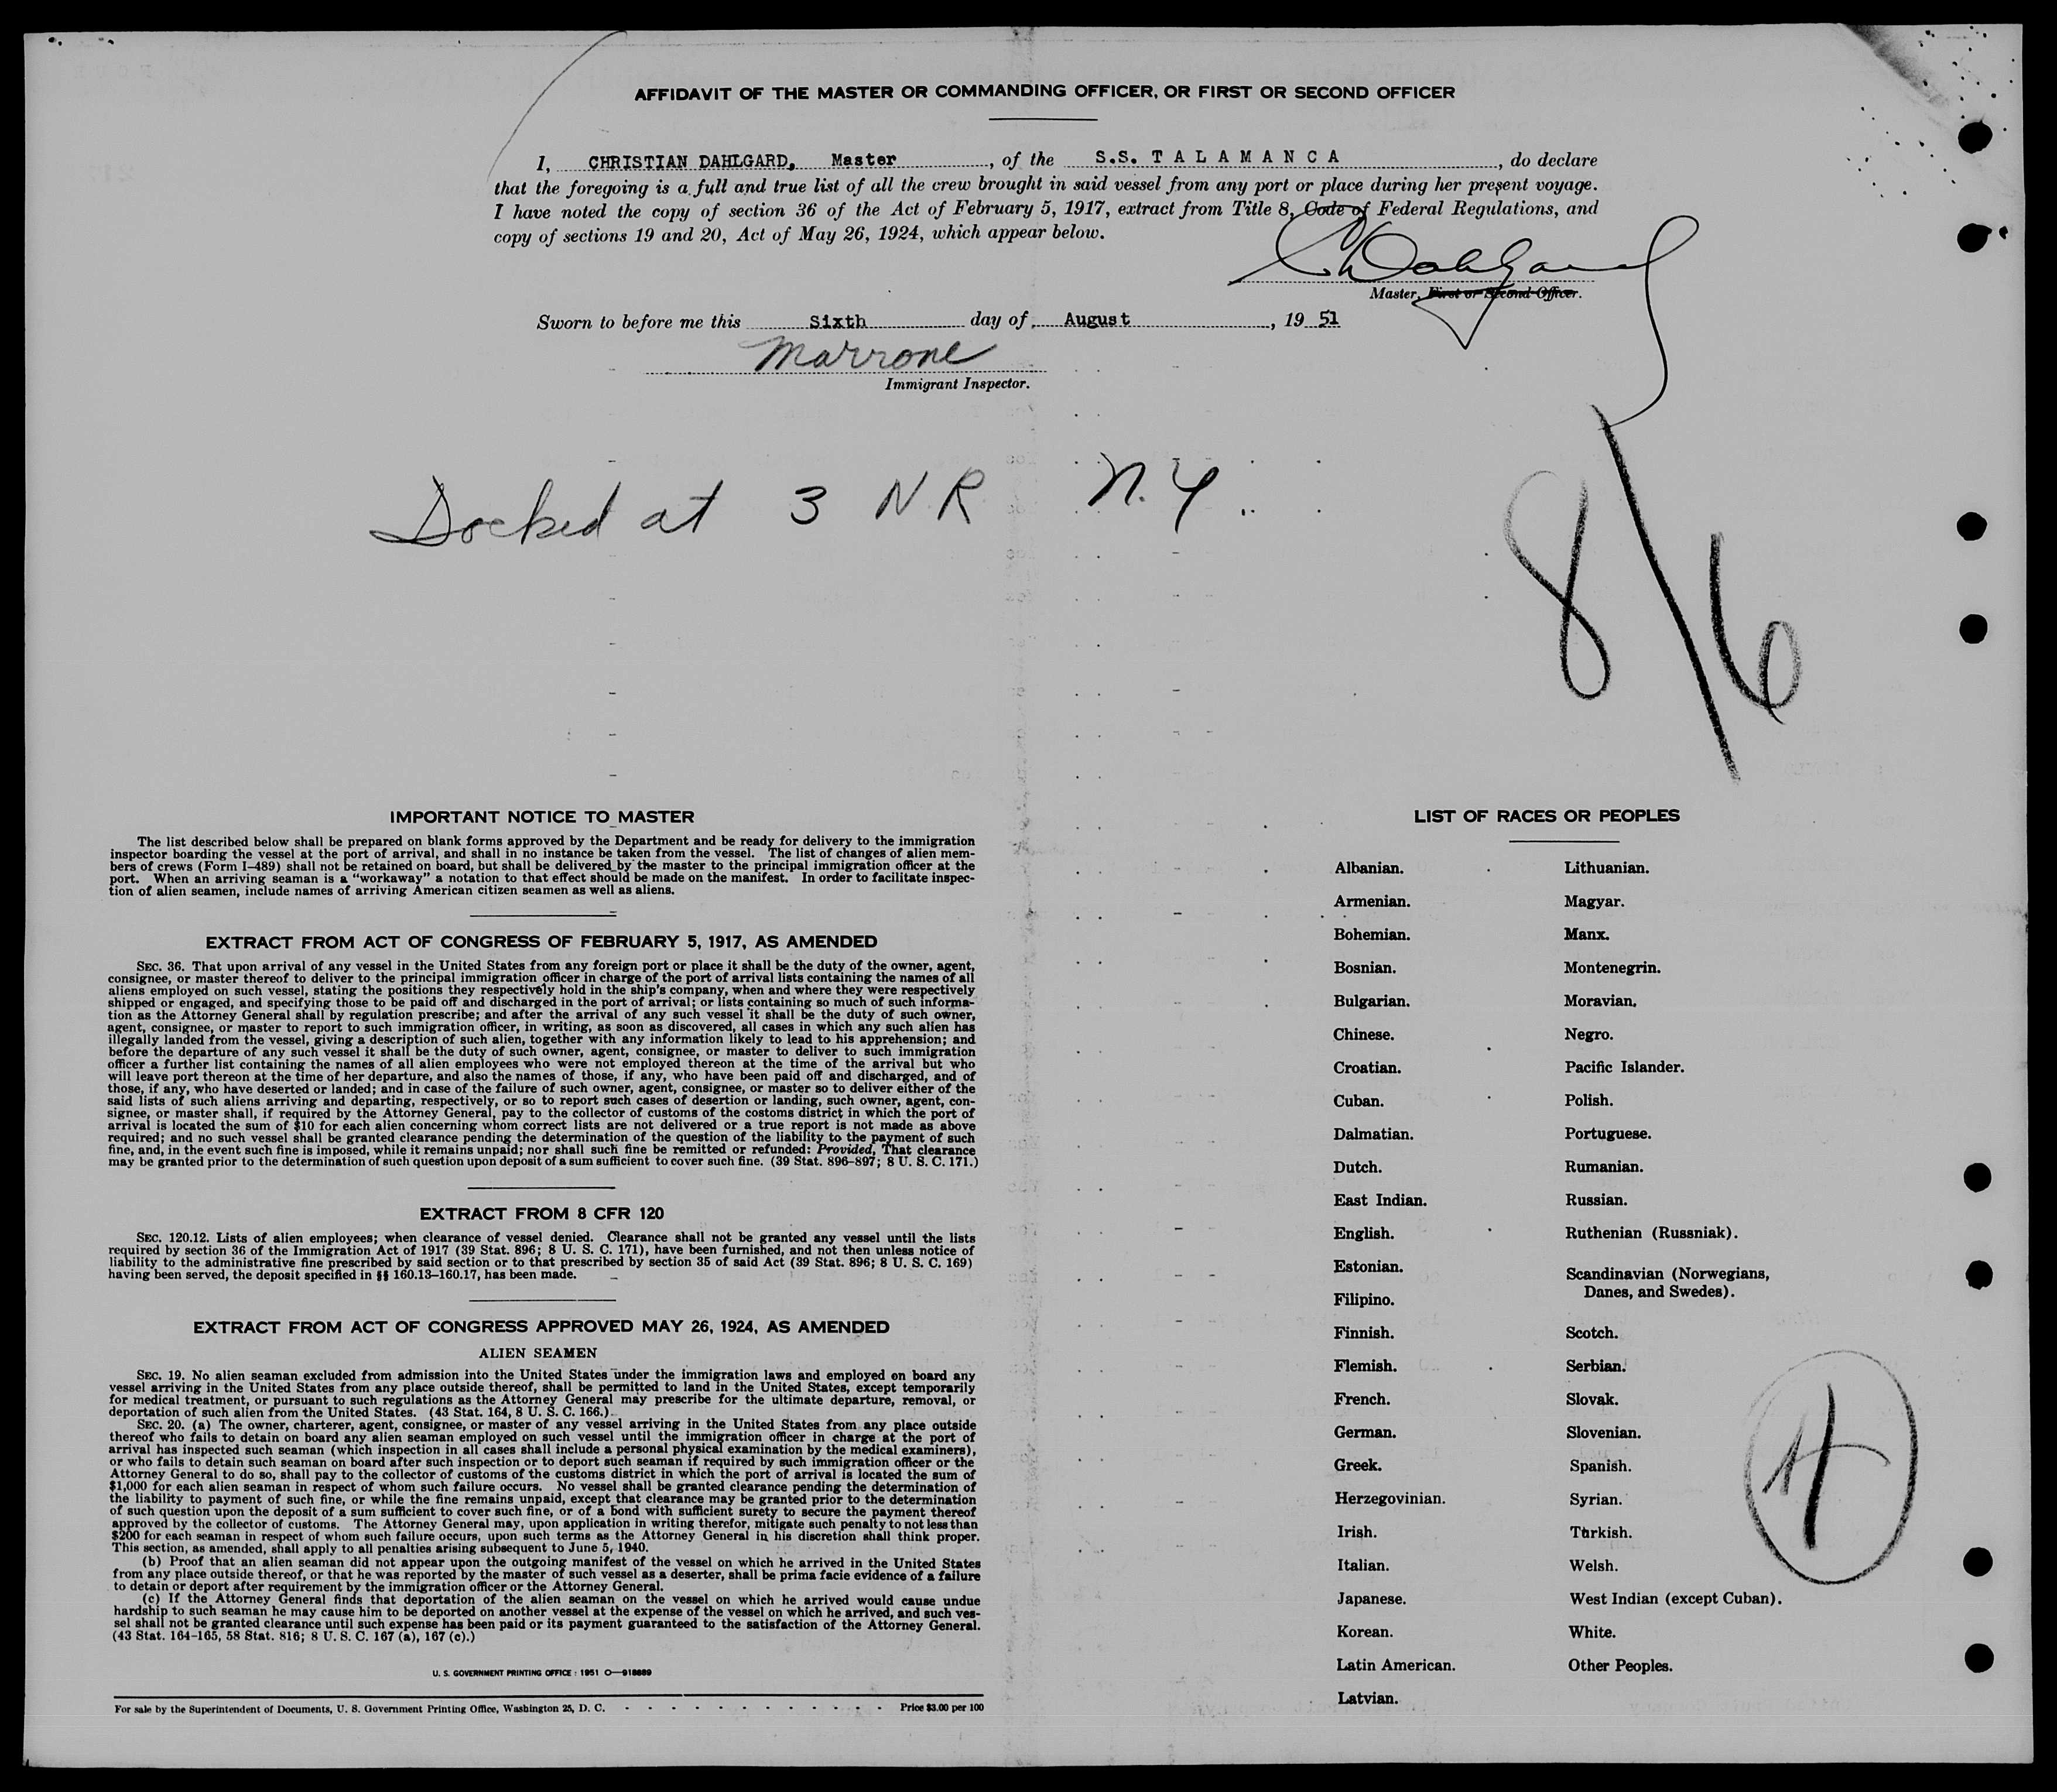 AFFIDAVIT OF THE MASTER OR COMMANDING OFFICER, OR FIRST OR SECOND OFFICER
I, CHRISTIAN DAHLGARD, Master, of the S.S. T A L A M A N C A, do declare
that the foregoing is a full and true list of all the crew brought in said vessel from any port or place during her present voyage.
I have noted the copy of section 36 of the Act of February 5, 1917, extract from Title 8, Code of Federal Regulations, and
copy of sections 19 and 20, Act of May 26, 1924, which appear below.
Ch Dahlgard
Master, First or Second Officer.
Sworn to before me this Sixth day of August, 19 51
Marrone
Immigrant Inspector.
Docked at 3 N R N.Y.
8/6
IMPORTANT NOTICE TO MASTER
The list described below shall be prepared on blank forms approved by the Department and be ready for delivery to the immigration
inspector boarding the vessel at the port of arrival, and shall in no instance be taken from the vessel. The list of changes of alien mem-
bers of crews (Form I-489) shall not be retained on board, but shall be delivered by the master to the principal immigration officer at the
port. When an arriving seaman is a "workaway" a notation to that effect should be made on the manifest. In order to facilitate inspec-
tion of alien seamen, include names of arriving American citizen seamen as well as aliens.
EXTRACT FROM ACT OF CONGRESS OF FEBRUARY 5, 1917, AS AMENDED
SEC. 36. That upon arrival of any vessel in the United States from any foreign port or place it shall be the duty of the owner, agent,
consignee, or master thereof to deliver to the principal immigration officer in charge of the port of arrival lists containing the names of all
aliens employed on such vessel, stating the positions they respectively hold in the ship's company, when and where they were respectively
shipped or engaged, and specifying those to be paid off and discharged in the port of arrival; or lists containing so much of such informa-
tion as the Attorney General shall by regulation prescribe; and after the arrival of any such vessel it shall be the duty of such owner,
agent, consignee, or master to report to such immigration officer, in writing, as soon as discovered, all cases in which any such alien has
illegally landed from the vessel, giving a description of such alien, together with any information likely to lead to his apprehension; and
before the departure of any such vessel it shall be the duty of such owner, agent, consignee, or master to deliver to such immigration
officer a further list containing the names of all alien employees who were not employed thereon at the time of the arrival but who
will leave port thereon at the time of her departure, and also the names of those, if any, who have been paid off and discharged, and of
those, if any, who have deserted or landed; and in case of the failure of such owner, agent, consignee, or master so to deliver either of the
said lists of such aliens arriving and departing, respectively, or so to report such cases of desertion or landing, such owner, agent, con-
signee, or master shall, if required by the Attorney General, pay to the collector of customs of the costoms district in which the port of
arrival is located the sum of $10 for each alien concerning whom correct lists are not delivered or a true report is not made as above
required; and no such vessel shall be granted clearance pending the determination of the question of the liability to the payment of such
fine, and, in the event such fine is imposed, while it remains unpaid; nor shall such fine be remitted or refunded: Provided, That clearance
may be granted prior to the determination of such question upon deposit of a sum sufficient to cover such fine. (39 Stat. 896-897; 8 U. S. C. 171.)
EXTRACT FROM 8 CFR 120
SEC. 120.12. Lists of alien employees; when clearance of vessel denied. Clearance shall not be granted any vessel until the lists
required by section 36 of the Immigration Act of 1917 (39 Stat. 896; 8 U. S. C. 171), have been furnished, and not then unless notice of
liability to the administrative fine prescribed by said section or to that prescribed by section 35 of said Act (39 Stat. 896; 8 U. S. C. 169)
having been served, the deposit specified in §§ 160.13-160.17, has been made.
EXTRACT FROM ACT OF CONGRESS APPROVED MAY 26, 1924, AS AMENDED
ALIEN SEAMEN
SEC. 19. No alien seaman excluded from admission into the United States under the immigration laws and employed on board any
vessel arriving in the United States from any place outside thereof, shall be permitted to land in the United States, except temporarily
for medical treatment, or pursuant to such regulations as the Attorney General may prescribe for the ultimate departure, removal, or
deportation of such alien from the United States. (43 Stat. 164, 8 U. S. C. 166.)
SEC. 20. (a) The owner, charterer, agent, consignee, or master of any vessel arriving in the United States from any place outside
thereof who fails to detain on board any alien seaman employed on such vessel until the immigration officer in charge at the port of
arrival has inspected such seaman (which inspection in all cases shall include a personal physical examination by the medical examiners),
or who fails to detain such seaman on board after such inspection or to deport such seaman if required by such immigration officer or the
Attorney General to do so, shall pay to the collector of customs of the customs district in which the port of arrival is located the sum of
$1,000 for each alien seaman in respect of whom such failure occurs. No vessel shall be granted clearance pending the determination of
the liability to payment of such fine, or while the fine remains unpaid, except that clearance may be granted prior to the determination
of such question upon the deposit of a sum sufficient to cover such fine, or of a bond with sufficient surety to secure the payment thereof
approved by the collector of customs. The Attorney General may, upon application in writing therefor, mitigate such penalty to not less than
$200 for each seaman in respect of whom such failure occurs, upon such terms as the Attorney General in his discretion shall think proper.
This section, as amended, shall apply to all penalties arising subsequent to June 5, 1940.
(b) Proof that an alien seaman did not appear upon the outgoing manifest of the vessel on which he arrived in the United States
from any place outside thereof, or that he was reported by the master of such vessel as a deserter, shall be prima facie evidence of a failure
to detain or deport after requirement by the immigration officer or the Attorney General.
(c) If the Attorney General finds that deportation of the alien seaman on the vessel on which he arrived would cause undue
hardship to such seaman he may cause him to be deported on another vessel at the expense of the vessel on which he arrived, and such ves-
sel shall not be granted clearance until such expense has been paid or its payment guaranteed to the satisfaction of the Attorney General.
(43 Stat. 164-165, 58 Stat. 816; 8 U. S. C. 167 (a), 167 (c).)
U. S. GOVERNMENT PRINTING OFFICE : 1951 O—918889
For sale by the Superintendent of Documents, U. S. Government Printing Office, Washington 25, D. C. - - - - - - - - - - - - Price $3.00 per 100
LIST OF RACES OR PEOPLES
Albanian.
Armenian.
Bohemian.
Bosnian.
Bulgarian.
Chinese.
Croatian.
Cuban.
Dalmatian.
Dutch.
East Indian.
English.
Estonian.
Filipino.
Finnish.
Flemish.
French.
German.
Greek.
Herzegovinian.
Irish.
Italian.
Japanese.
Korean.
Latin American.
Latvian.
Lithuanian.
Magyar.
Manx.
Montenegrin.
Moravian.
Negro.
Pacific Islander.
Polish.
Portuguese.
Rumanian.
Russian.
Ruthenian (Russniak).
Scandinavian (Norwegians,
Danes, and Swedes).
Scotch.
Serbian.
Slovak.
Slovenian.
Spanish.
Syrian.
Turkish.
Welsh.
West Indian (except Cuban).
White.
Other Peoples.